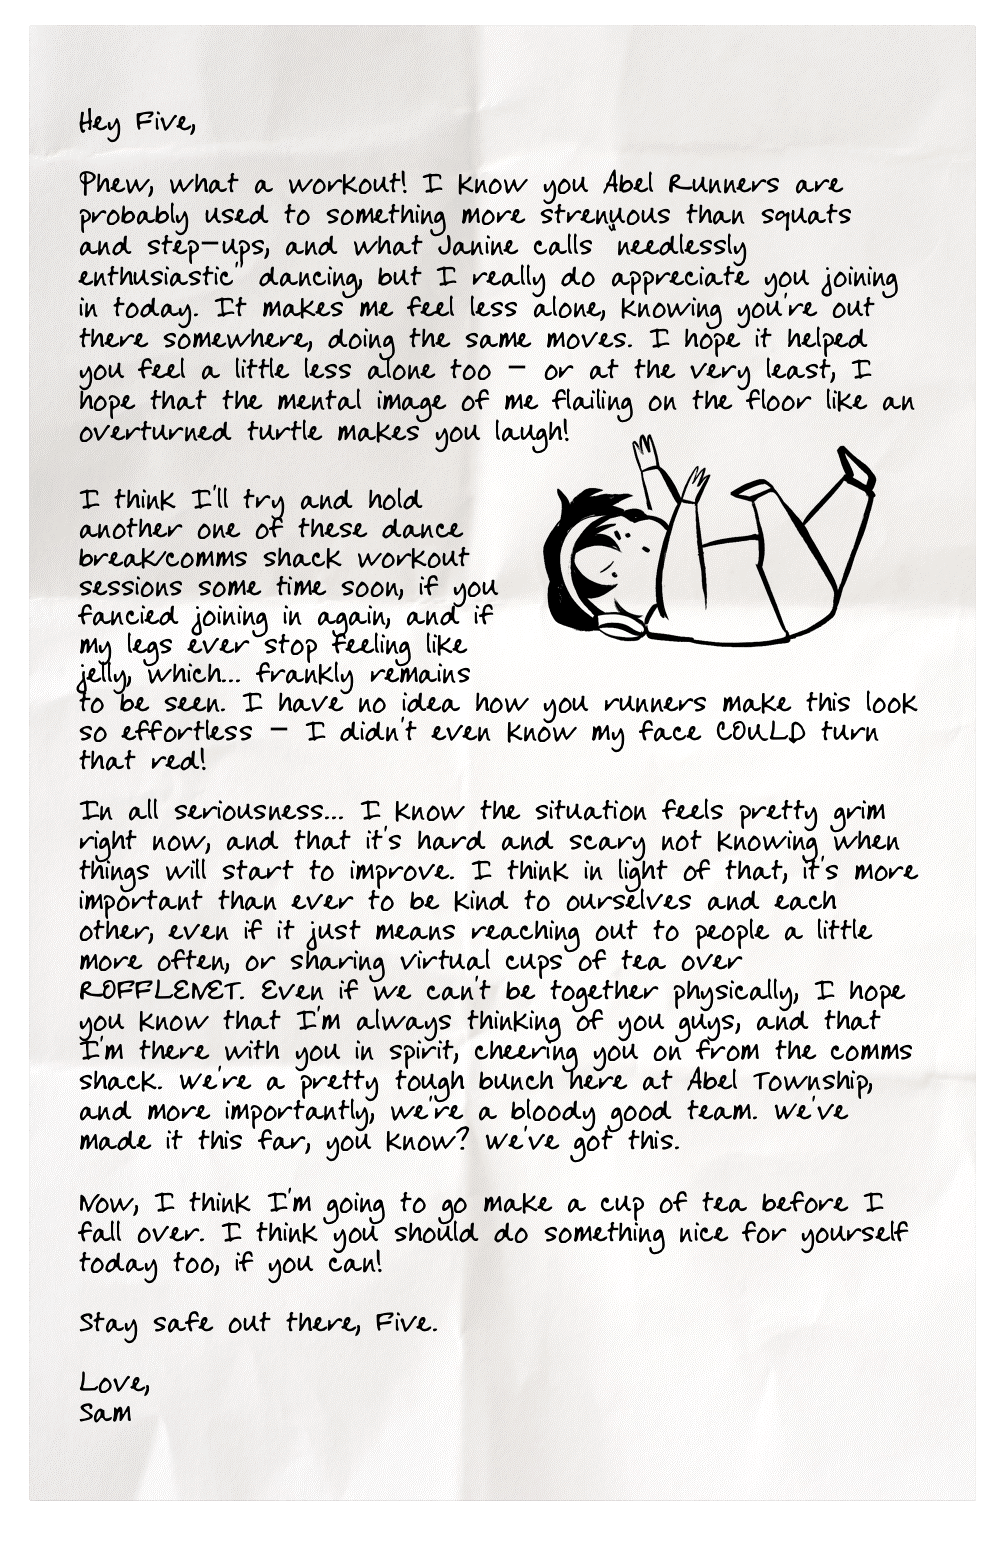 Hey Five,
Phew, what a workout! I know you Abel Runners are
probably used to something more strenuous than squats
and step-ups, and what Janine calls "needlessly
enthusiastic" dancing, but I really do appreciate you joining
in today. It makes me feel less alone, knowing you're out
there somewhere, doing the same moves. I hope it helped
you feel a little less alone too - or at the very least, I
hope that the mental image of me flailing on the floor like an
overturned turtle makes you laugh!
I think I'll try and hold
another one of these dance
break/comms shack workout
sessions some time soon, if you
fancied joining in again, and if
my legs ever stop feeling like
jelly, which... frankly remains
to be seen. I have no idea how you runners make this look
so effortless - I didn't even know my face COULD turn
that red!
In all seriousness... I know the situation feels pretty grim
right now, and that it's hard and scary not knowing when
things will start to improve. I think in light of that, it's more
important than ever to be kind to ourselves and each
other, even if it just means reaching out to people a little
more often, or sharing virtual cups of tea over
ROFFLENET. Even if we can't be together physically, I hope
you know that I'm always thinking of you guys, and that
I'm there with you in spirit, cheering you on from the comms
shack. We're a pretty tough bunch here at Abel Township,
and more importantly, we're a bloody good team. We've
made it this far, you know? We've got this.
Now, I think I'm going to go make a cup of tea before I
fall over. I think you should do something nice for yourself
today too, if you can!
Stay safe out there, Five.
Love,
Sam